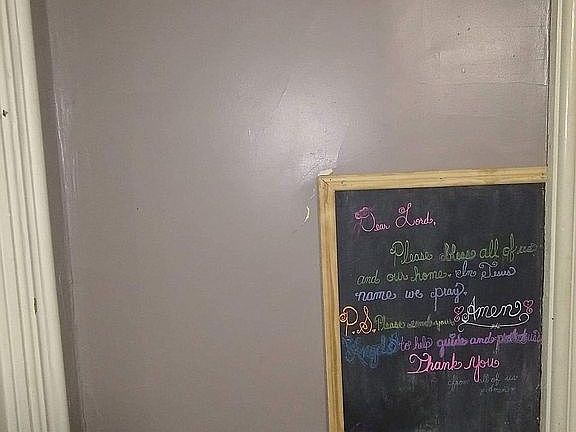 Dear Lord,
Please bless all of us
and our home. In Jesus
name we pray.
Amen
P.S. Please send your
Angels to help guide and protect us
Thank You
from all of us